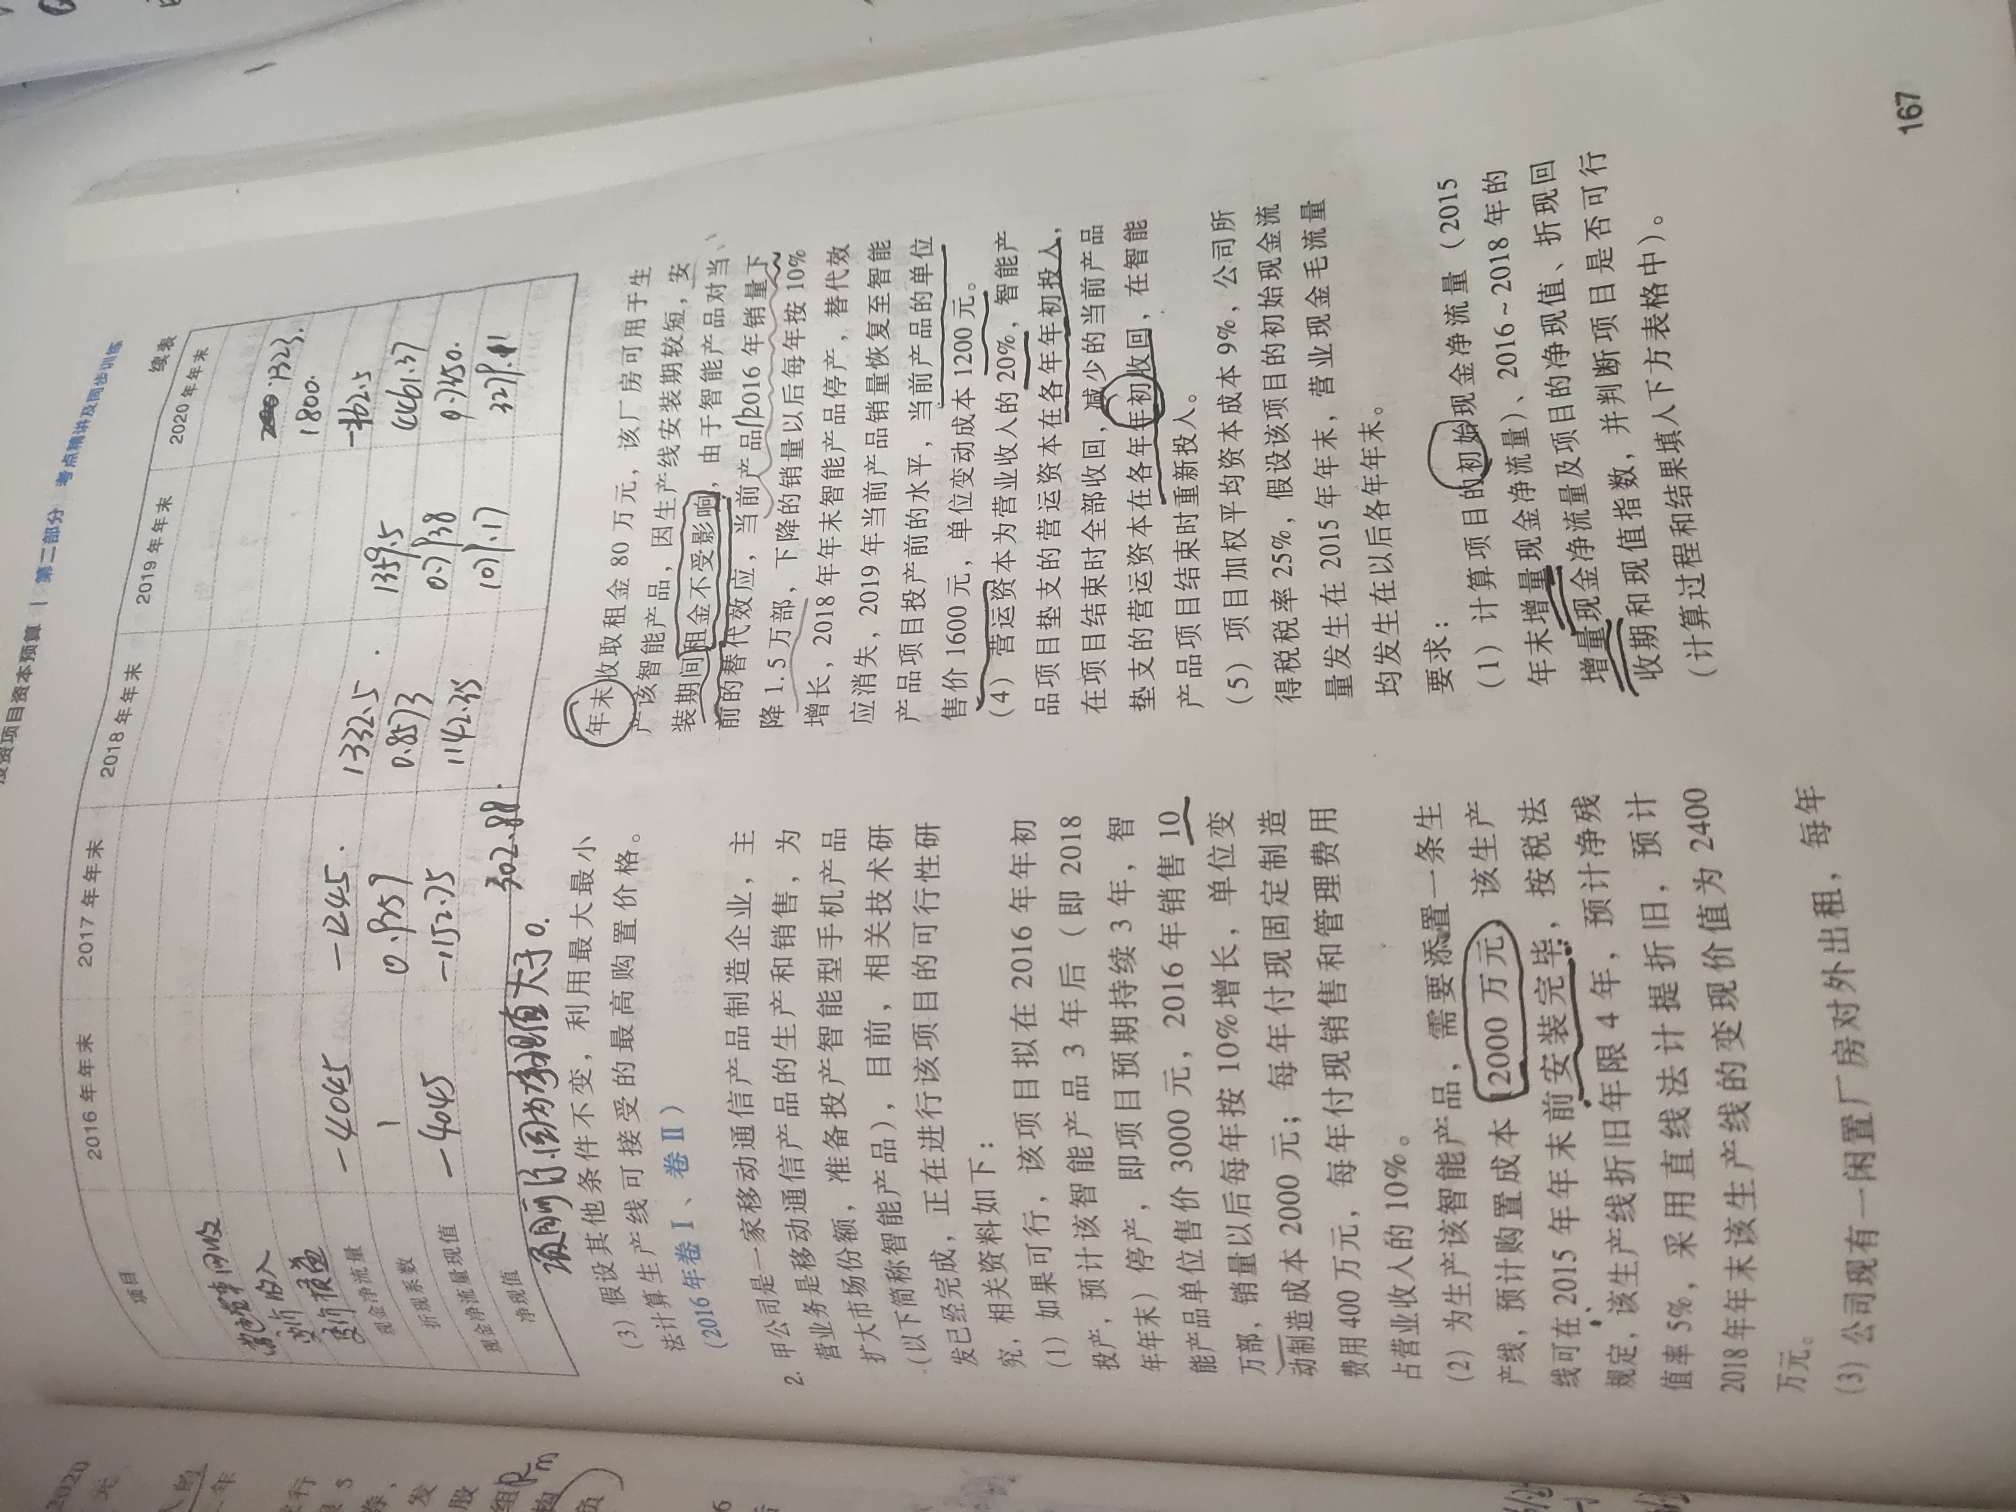 投资项目资本预算 | 第二部分 考点精讲及同步训练
续表
项目 2016年年末 2017年年末 2018年年末 2019年年末 2020年年末
1323.
1800.
-362.5
现金净流量 -4045 -1245. 1332.5. 1359.5 4461.37
折现系数 1 0.9259 0.8573 0.7938 0.7350.
现金净流量现值 -4045 -1152.75 1142.35 1079.17 3279.11
净现值 302.88.
大于0.
(3)假设其他条件不变,利用最大最小
法计算生产线可接受的最高购置价格。
(2016年卷Ⅰ、卷Ⅱ)
2. 甲公司是一家移动通信产品制造企业,主
营业务是移动通信产品的生产和销售,为
扩大市场份额,准备投产智能型手机产品
(以下简称智能产品),目前,相关技术研
发已经完成,正在进行该项目的可行性研
究,相关资料如下:
(1)如果可行,该项目拟在2016年年初
投产,预计该智能产品3年后(即2018
年年末)停产,即项目预期持续3年,智
能产品单位售价3000元,2016年销售10
万部,销量以后每年按10%增长,单位变
动制造成本2000元;每年付现固定制造
费用400万元,每年付现销售和管理费用
占营业收入的10%。
(2)为生产该智能产品,需要添置一条生
产线,预计购置成本12000万元,该生产
线可在2015年年末前安装完毕,按税法
规定,该生产线折旧年限4年,预计净残
值率5%,采用直线法计提折旧,预计
2018年年末该生产线的变现价值为2400
万元。
(3)公司现有一闲置厂房对外出租,每年
年末收取租金80万元,该厂房可用于生
产该智能产品,因生产线安装期较短,安
装期间租金不受影响,由于智能产品对当
前的替代效应,当前产品2016年销量下
降1.5万部,下降的销量以后每年按10%
增长,2018年年末智能产品停产,替代效
应消失,2019年当前产品销量恢复至智能
产品项目投产前的水平,当前产品的单位
售价1600元,单位变动成本1200元。
(4)营运资本为营业收入的20%,智能产
品项目垫支的营运资本在各年年初投入,
在项目结束时全部收回,减少的当前产品
垫支的营运资本在各年年初收回,在智能
产品项目结束时重新投入。
(5)项目加权平均资本成本9%,公司所
得税税率25%,假设该项目的初始现金流
量发生在2015年年末,营业现金毛流量
均发生在以后各年年末。
要求:
(1)计算项目的初始现金净流量(2015
年末增量现金净流量)、2016~2018年的
增量现金净流量及项目的净现值、折现回
收期和现值指数,并判断项目是否可行
(计算过程和结果填入下方表格中)。
167